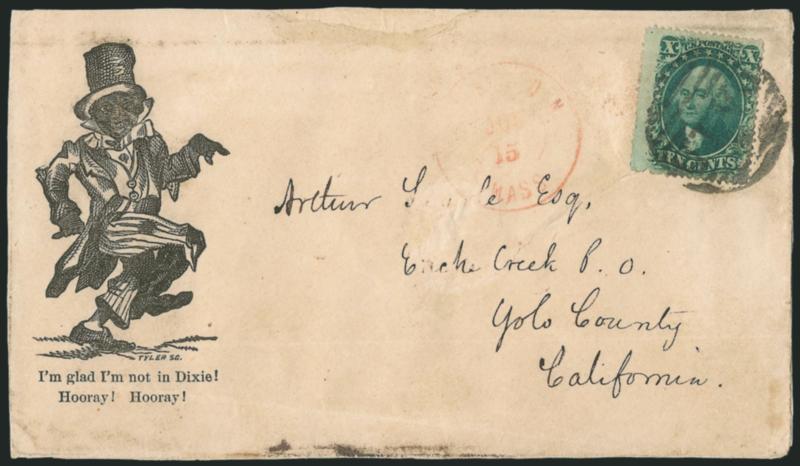 X U.S. POSTAGE X
TEN CENTS
15
MASS
Arthur Esq,
Creek P. O.
Yolo County
California.
TYLER SC.
I'm glad I'm not in Dixie!
Hooray! Hooray!